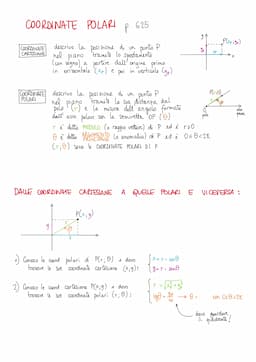 COORDINATE POLARI p 625
COORDINATE
CARTESIANE
descrivo la posizione di un punto P
nel piano tramite lo spostamento
(con segno) a partire dall'origine prima
in orizzontale (xP) e poi in verticale (yP)
y
P(x;y)
x
COORDINATE
POLARI
descrivo la posizione di un punto P
nel piano tramite la sua distanza dal
polo (r) e la misura dell'angolo formato
dall'asse polare con la semiretta OP (θ)
r è detto MODULO (o raggio vettore) di P ed è r≥0
θ è detto (o anomalia) di P ed è 0≤θ<2π
(r; θ) sono le COORDINATE POLARI DI P
DALLE COORDINATE CARTESIANE A QUELLE POLARI E VICEVERSA:
y
P(x;y)
r
θ
x
1) Conosco le coord. polari di P(r; θ) e devo
trovare le sue coordinate cartesiane (x;y):
x = r · cosθ
y = r · sinθ
2) Conosco le coord. cartesiane P(x;y) e devo
trovare le sue coordinate polari (r; θ):
r = √x²+y²
→ θ = con 0≤θ<2π
devo guardare
il quadrante!